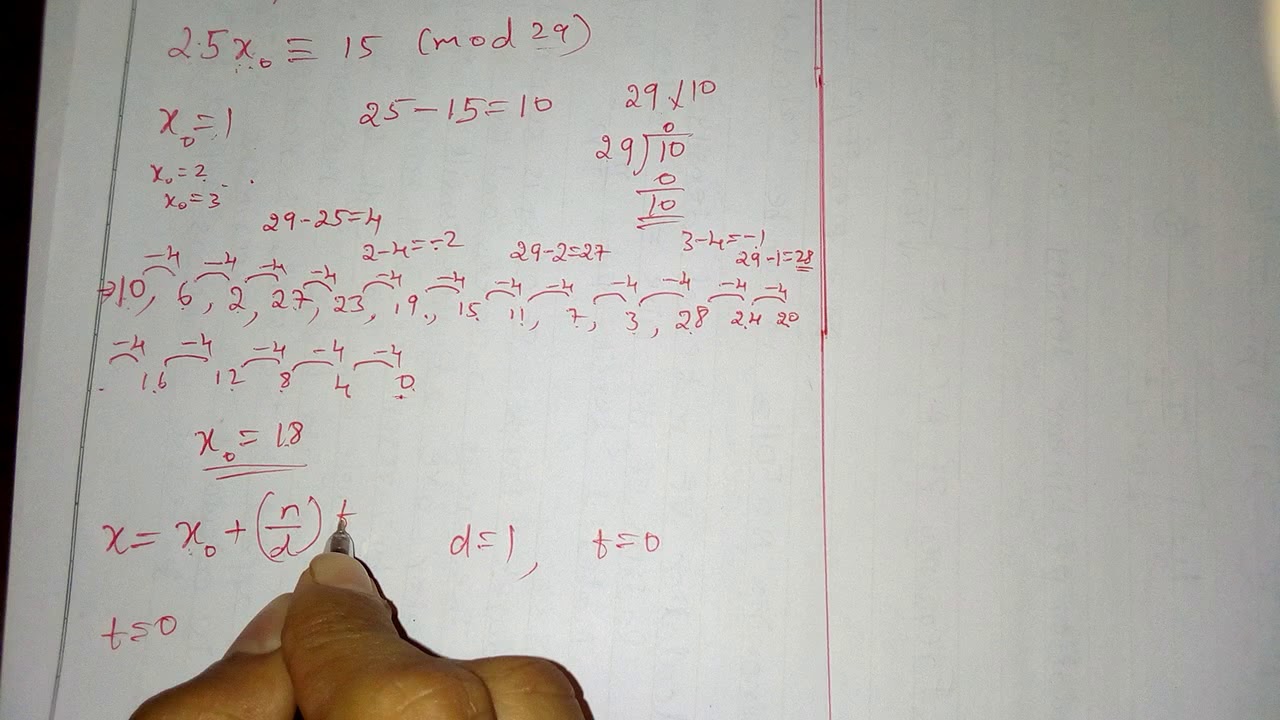 25x₀ ≡ 15 (mod 29)
x₀ = 1 25 - 15 = 10 29 ∤ 10
x₀ = 2
x₀ = 3
0
29)10
0
10
29-25=4
2-4=-2 29-2=27 3-4=-1
29-1=28
-4 -4 -4 -4 -4 -4 -4 -4 -4 -4 -4 -4
→10, 6, 2, 27, 23, 19, 15, 11, 7, 3, 28 24 20
-4 -4 -4 -4 -4
16 12 8 4 0
x₀ = 18
x = x₀ + (n/d) t d=1, t=0
t=0